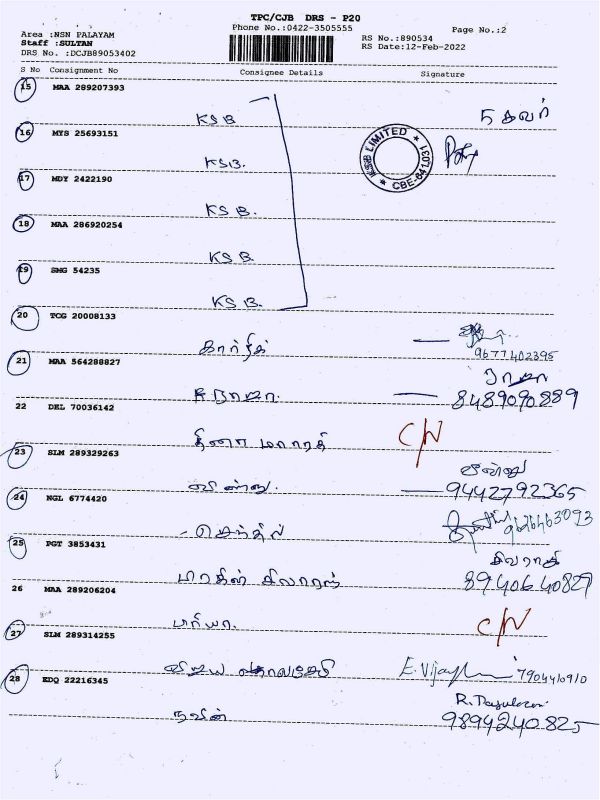 TPC/CJB DRS - P20
Area :NSN PALAYAM Phone No.:0422-3505555 Page No.:2
Staff :SULTAN RS No.:890534
DRS No. :DCJB89053402 RS Date:12-Feb-2022
S No Consignment No Consignee Details Signature
15 MAA 289207393
KSB 5 கவர்
16 MYS 25693151
KSB LIMITED CBE-641031
KSB.
17 MDY 2422190
KSB.
18 MAA 286920254
KSB.
19 SMG 54235
KSB.
20 TCG 20008133
கார்த்திக் 9677402395
21 MAA 564288827
ராஜா
8489090889
22 DEL 70036142
C/N
23 SLM 289329263
விஷ்ணு. 9442792365
24 NGL 6774420
செந்தில் 9626463093
25 PGT 3853431
சிவராசு
8940640827
26 MAA 289206204
பிரியா. C/N
27 SLM 289314255
விஜய E.Vijay 7904410910
28 EDQ 22216345
நவீன் 9894240825